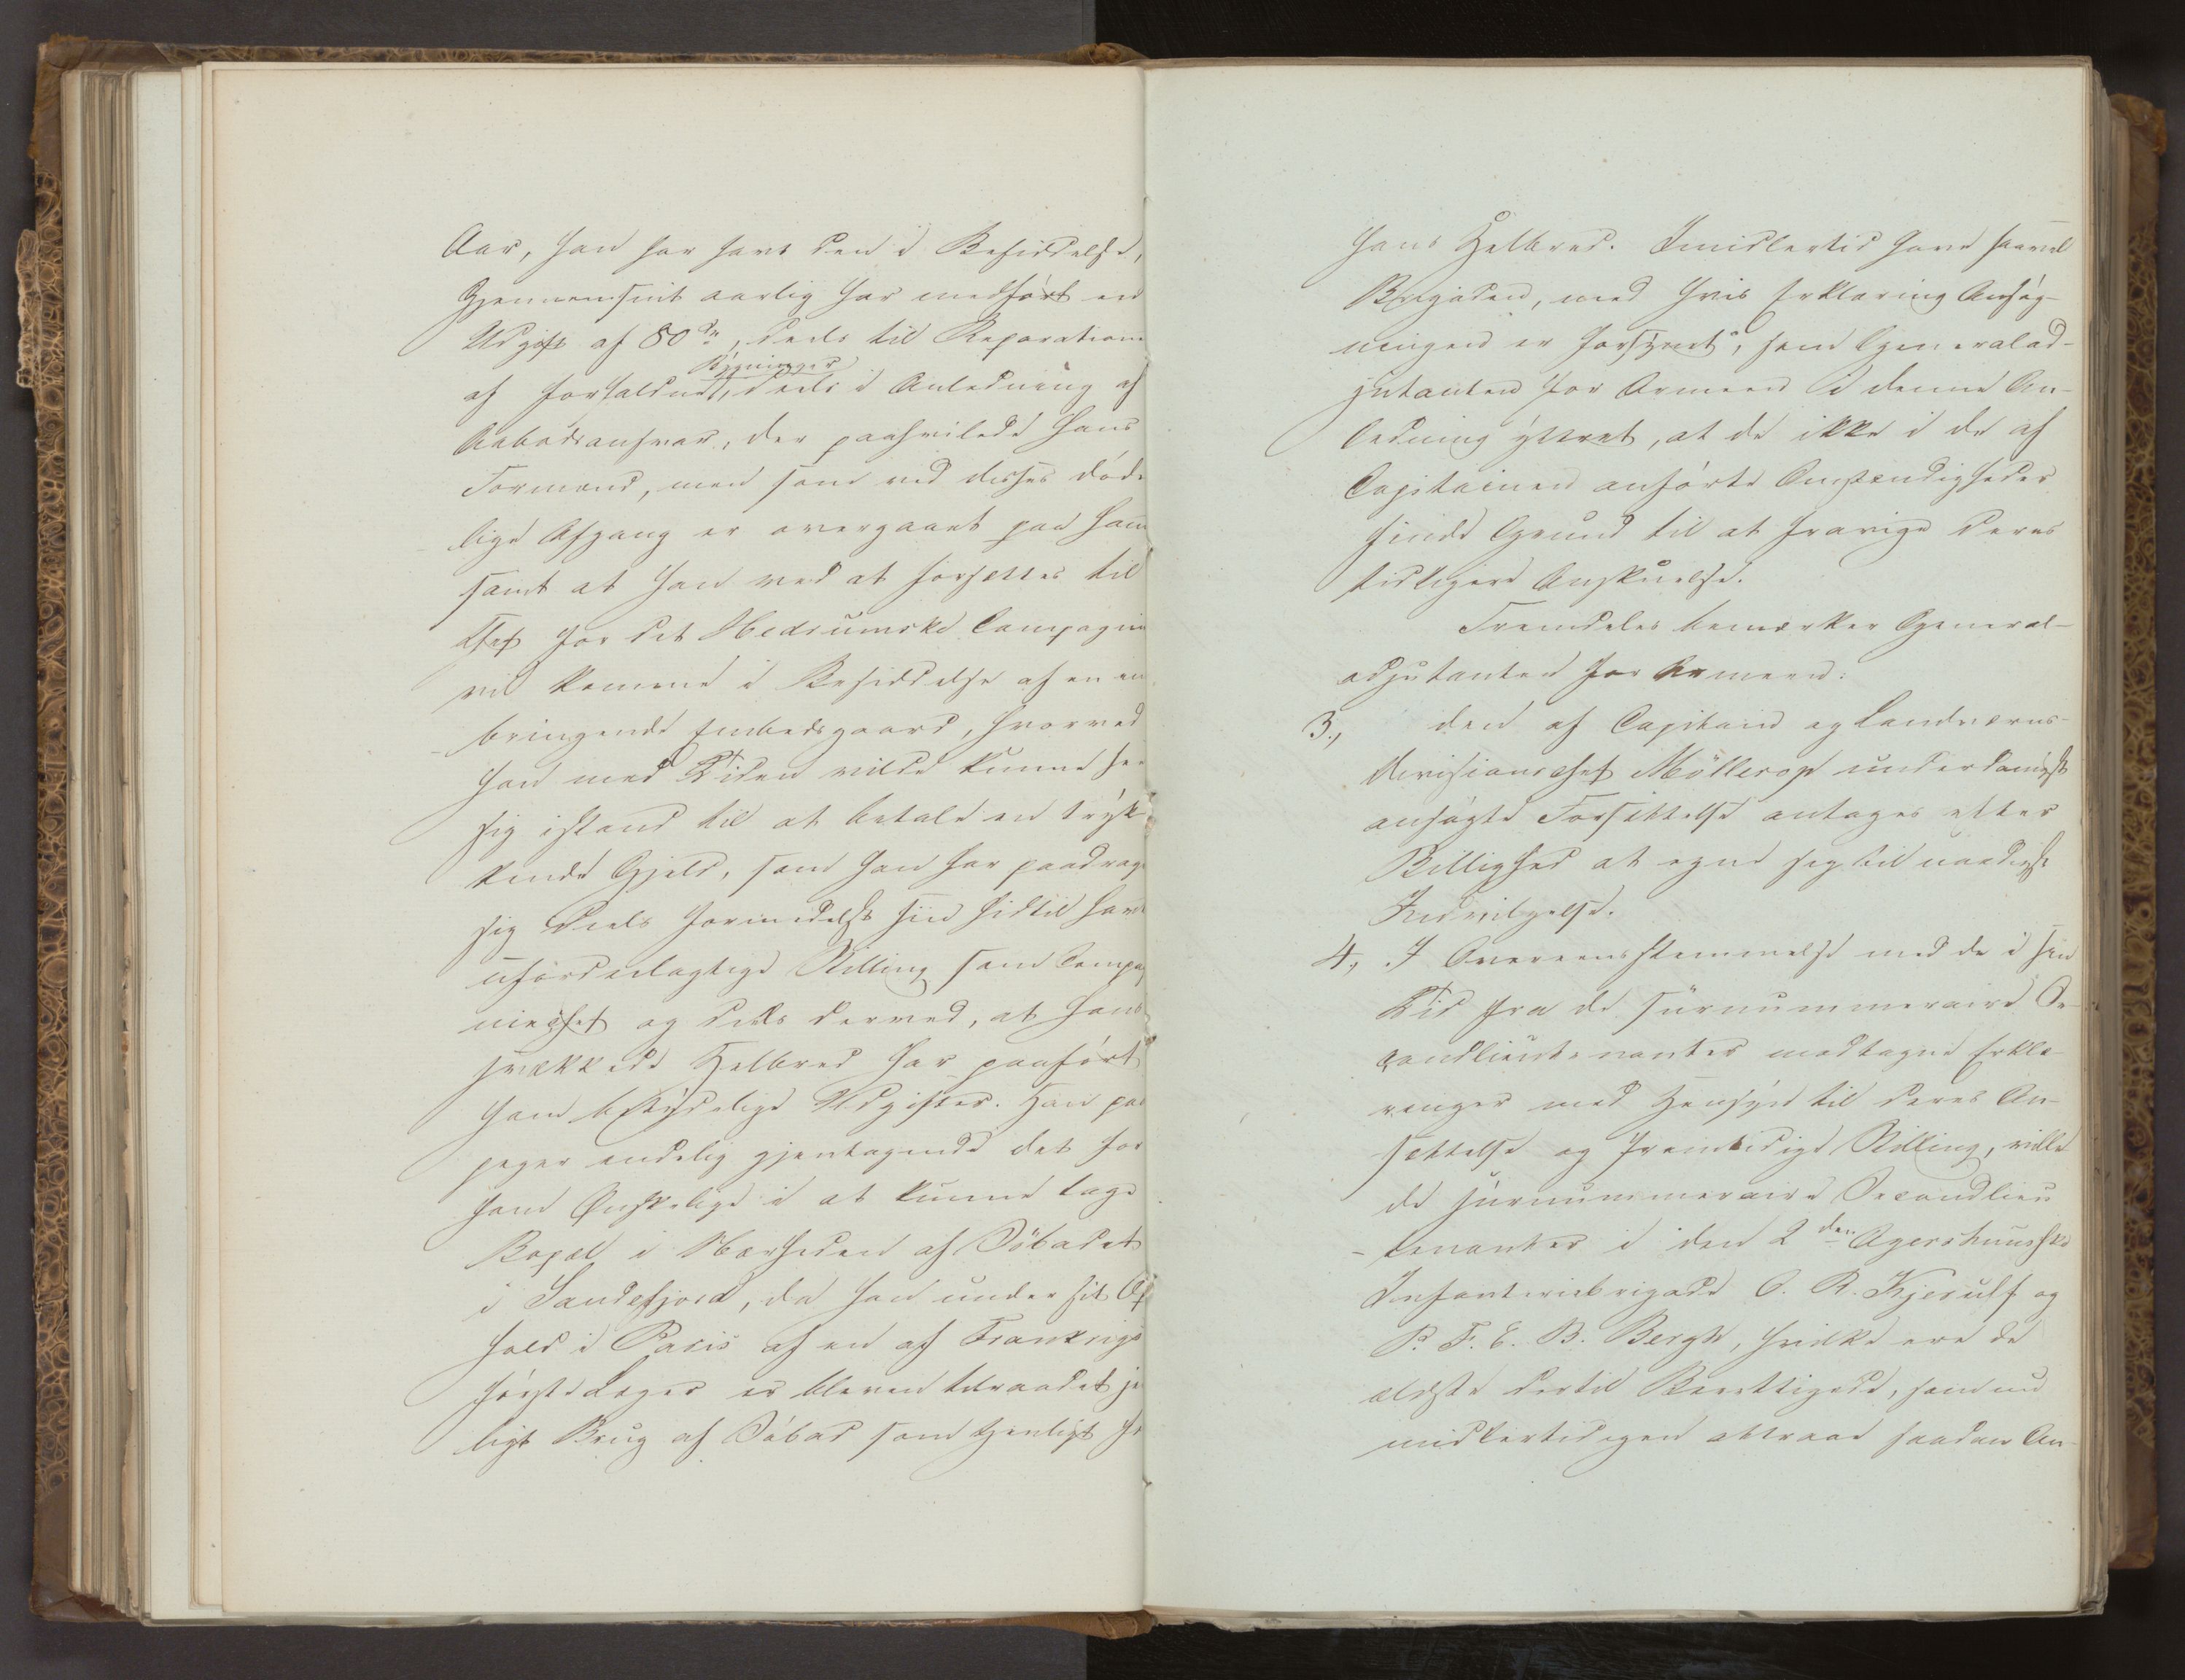 Aar, han har havt den i Besiddelse,
Gjennemsnit aarlig har medført en
Udgift af 80 , deels til Reparation
Bygninger
af forfaldne, deels i Anledning af
Aabodsansvar, der paahvilede hans
Formand, men som ved disses død-
lige Afgang er overgaaet paa ham
samt at han ved at forsættes til
Chef for det Hedrumske Compagnie
vil komme i Besiddelse af en ind
bringende Embedsgaard, hvorved
han med Tiden vilde kunne see
sig istand til at betale en tryk-
kende Gjeld, som han har paadraget
sig deels formedelst sin hidtil havte
ufordeelagtige Stilling som Compag
niechef og deels derved, at hans
svækkede Helbred har paaført
ham betydelige Udgifter. Han paa
peger endelig gjentagende det for
ham Ønskelige i at kunne tage
Bopæl i Nærheden af Søbadet
i Sandefjord, da han under sit Op
hold i Paris af en af Frankrigs
første Læger er bleven tilraadet jev
ligt Brug af Søbad som tjenligt for
hans Helbred. Imidlertid have saavel
Brigaden, med hvis Erklæring Ansøg-
ningen er forsynet, som Generalad-
jutanten for Armeen i denne An-
ledning yttret, at de ikke i de af
Capitainen anførte Omstændigheder
finde Grund til at fravige deres
tidligere Anskuelse.
Fremdeles bemærker General-
adjutanten for Armeen:
3., den af Capitain og Landværns-
divisionschef Möllerop underdanigst
ansøgte Forsættelse antages efter
Billighed at egne sig til naadigst
Indvilgelse.
4., I Overeensstemmelse med de i sin
Tid fra de surnummeraire Se-
condlieutenanter modtagne Erklæ-
ringer med Hensyn til deres An-
sættelse og fremtidige Stilling, ville
de surnummeraire Secondlieu
-tenanter i den 2den Agershuusske
Infanteriebrigade O. R. Kjerulf og
P. F. E. B. Bergh, hvilke ere de
ældste dertil Berettigede, som nu
midlertidigen attraae saadan An-